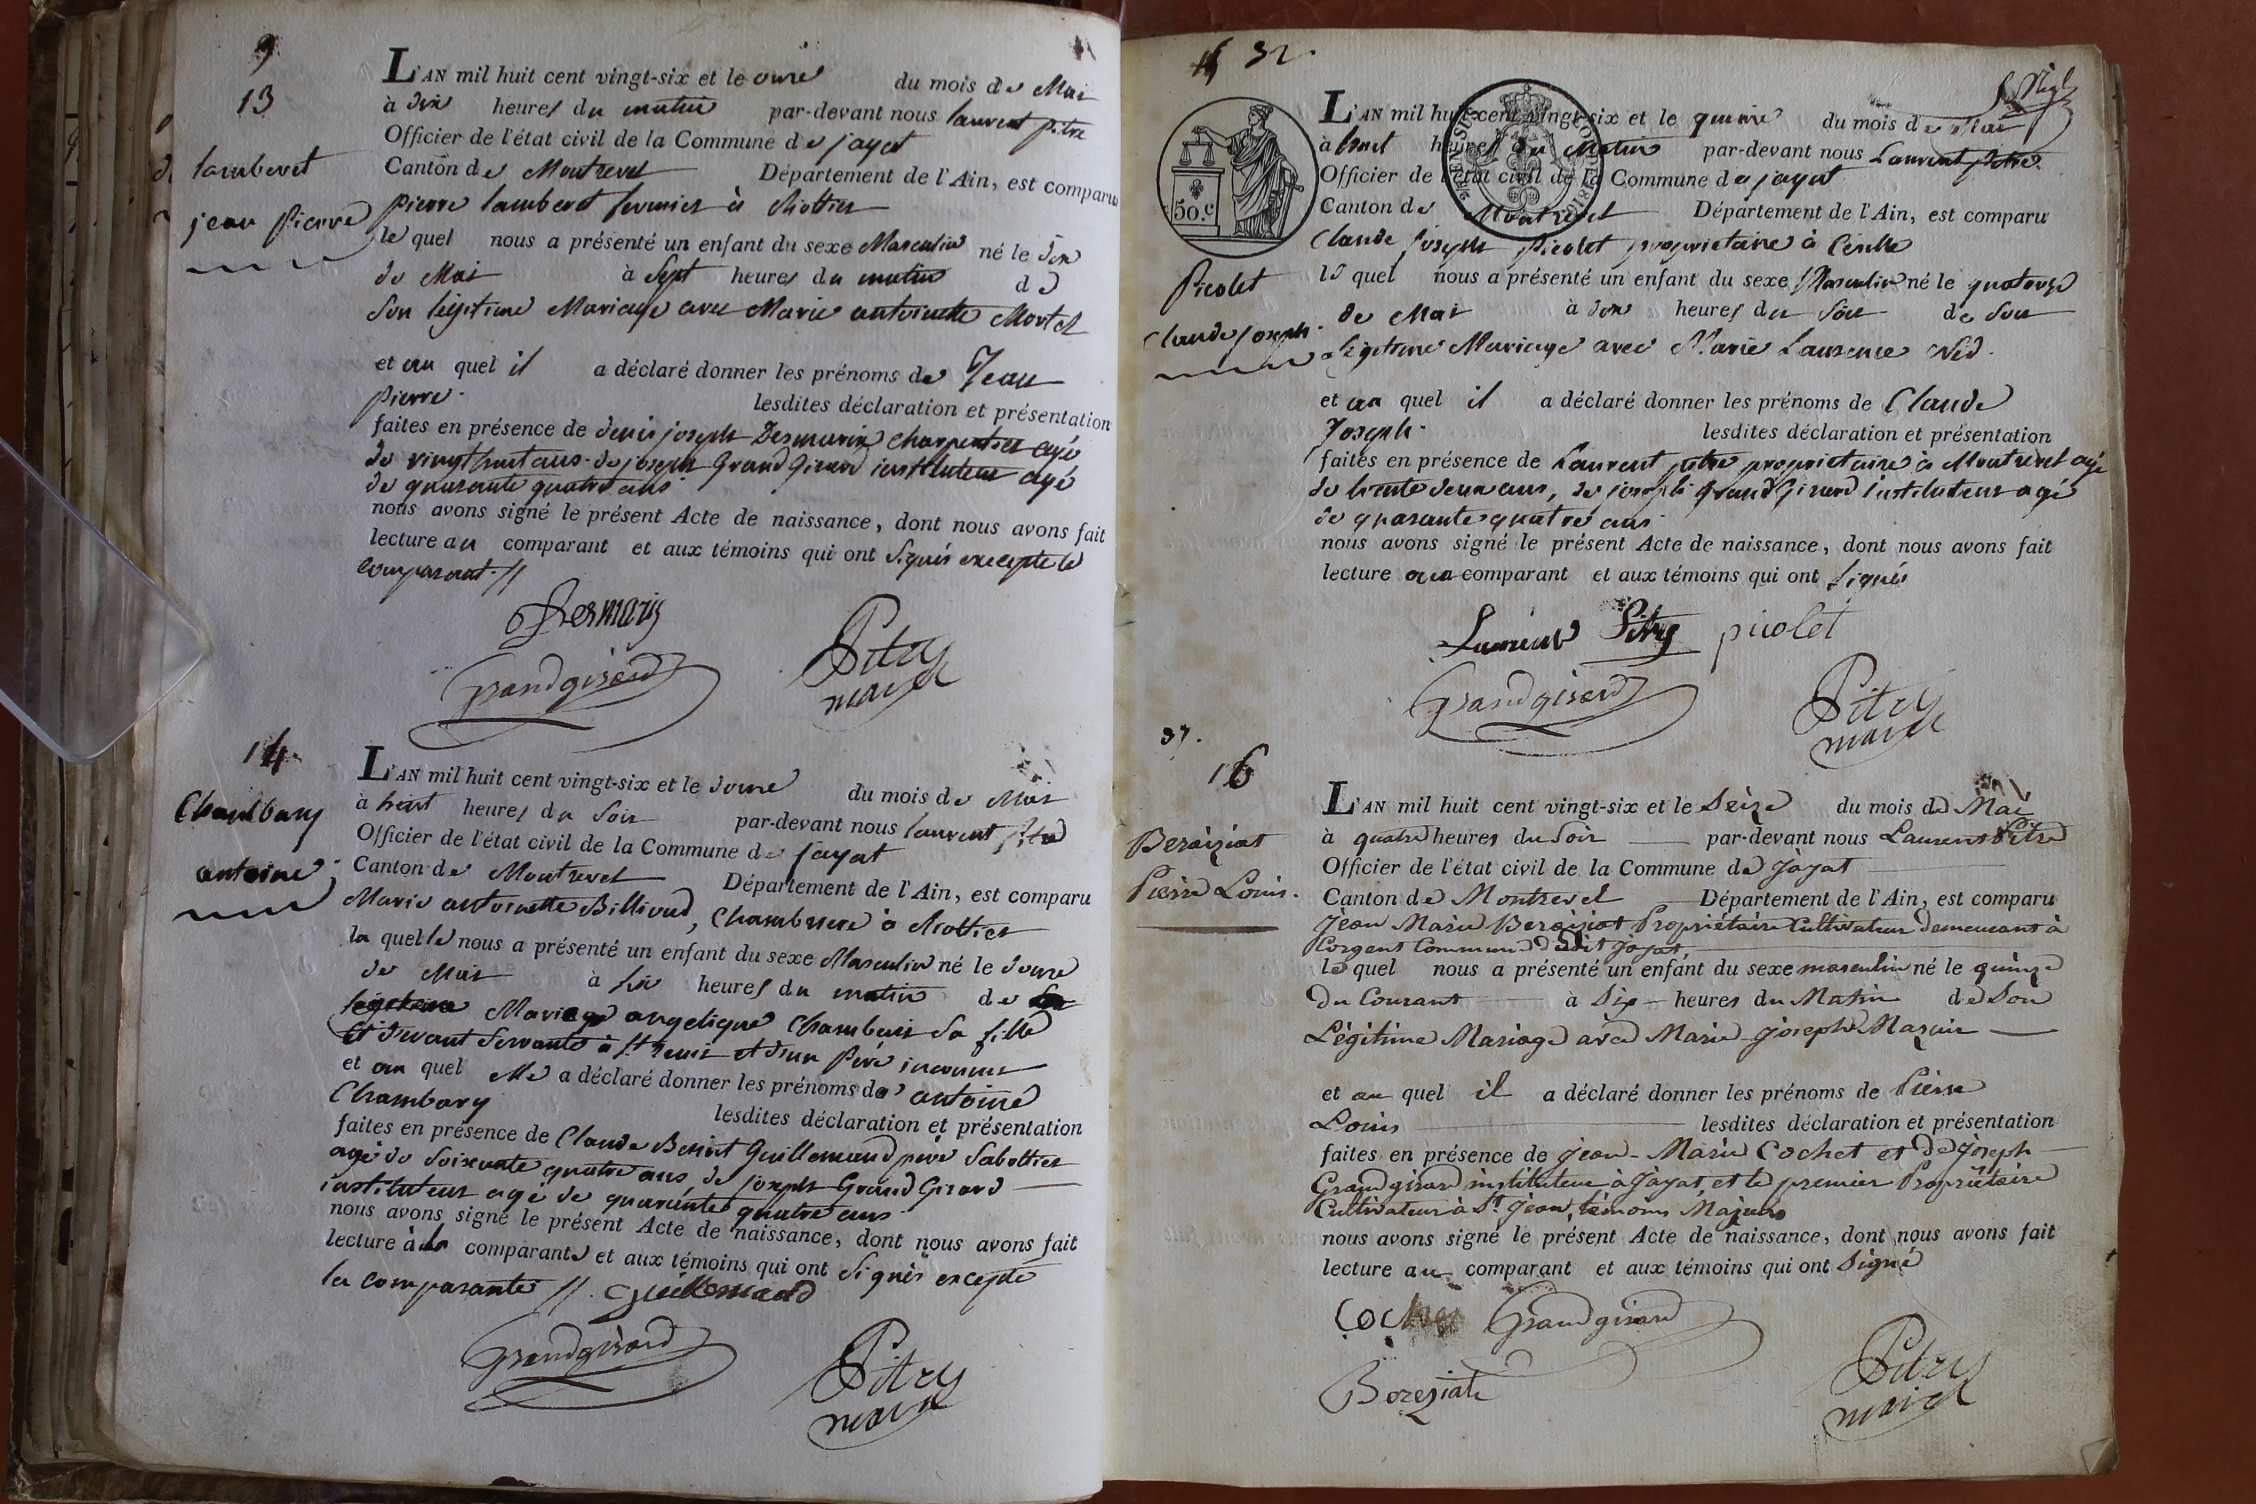 9
13
lamberet
jean Pierre
L'AN mil huit cent vingt-six et le onze du mois de Mai
à dix heures du matin par-devant nous laurent pitre
Officier de l'état civil de la Commune de jayat
Canton de Montrevel Département de l'Ain, est comparu
pierre lamberet fermier à
le quel nous a présenté un enfant du sexe Masculin né le dix
de Mai à Sept heures du matin de
Son légitime Mariage avec Marie antoinette Mortel
et au quel il a déclaré donner les prénoms de Jean
pierre. lesdites déclaration et présentation
faites en présence de denis joseph Desmaris charpentier agé
de vingt huit ans. de joseph Grand Girard instituteur agé
de quarante quatre ans
nous avons signé le présent Acte de naissance, dont nous avons fait
lecture au comparant et aux témoins qui ont Signés excepté le
comparant. //
Desmaris
Grandgirard
Pitre
maire
14
Chambary
antoine
L'AN mil huit cent vingt-six et le douze du mois de Mai
à huit heures du Soir par-devant nous laurent pitre
Officier de l'état civil de la Commune de jayat
Canton de Montrevel Département de l'Ain, est comparu
Marie antoinette Billioud, Chambriere à
la quelle nous a présenté un enfant du sexe Masculin né le douze
de Mai à Six heures du matin de
légitime Mariage angelique Chambari Sa fille
et d'un Père inconnu
et au quel elle a déclaré donner les prénoms de antoine
Chambary lesdites déclaration et présentation
faites en présence de Claude Benoit Guillemaud père Sabottier
agé de Soixante quatre ans, de joseph Grand Girard
instituteur agé de quarante quatre ans
nous avons signé le présent Acte de naissance, dont nous avons fait
lecture à la comparante et aux témoins qui ont Signés excepté
la comparante //. Guillemaud
Grandgirard
Pitre
maire
15 32.
50.c
Picolet
Claude Joseph.
L'AN mil huit cent vingt-six et le quinze du mois de Mai
à huit heures du Matin par-devant nous Laurent pitre
Officier de l'état civil de la Commune de jayat
Canton de Montrevel Département de l'Ain, est comparu
Claude joseph Picolet proprietaire à
le quel nous a présenté un enfant du sexe Masculin né le quatorze
de Mai à dix heures du Soir de Son
légitime Mariage avec Marie Laurence
et au quel il a déclaré donner les prénoms de Claude
Joseph. lesdites déclaration et présentation
faites en présence de Laurent pitre proprietaire à Montrevel agé
de trente deux ans, de joseph Grand Girard instituteur agé
de quarante quatre ans
nous avons signé le présent Acte de naissance, dont nous avons fait
lecture au comparant et aux témoins qui ont Signés
Laurent Pitre picolet
Grandgirard
Pitre
maire
37.
16
Beraiziat
Pierre Louis.
L'AN mil huit cent vingt-six et le Seize du mois de Mai
à quatre heures du Soir par-devant nous Laurent Pitre
Officier de l'état civil de la Commune de Jayat
Canton de Montrevel Département de l'Ain, est comparu
Jean Marie Beraiziat Propriétaire Cultivateur demeurant à
Corgent Commune dudit Jayat,
le quel nous a présenté un enfant du sexe masculin né le quinze
du Courant à Six heures du Matin de Son
Légitime Mariage avec Marie Joseph Mazuir
et au quel il a déclaré donner les prénoms de Pierre
Louis lesdites déclaration et présentation
faites en présence de Jean-Marie Cochet et de Joseph
Grandgirard instituteur à Jayat, et le premier Propriétaire
Cultivateur à St. Jean, témoins Majeurs
nous avons signé le présent Acte de naissance, dont nous avons fait
lecture au comparant et aux témoins qui ont Signé
Cochet Grandgirard
Bereziat
Pitre
maire